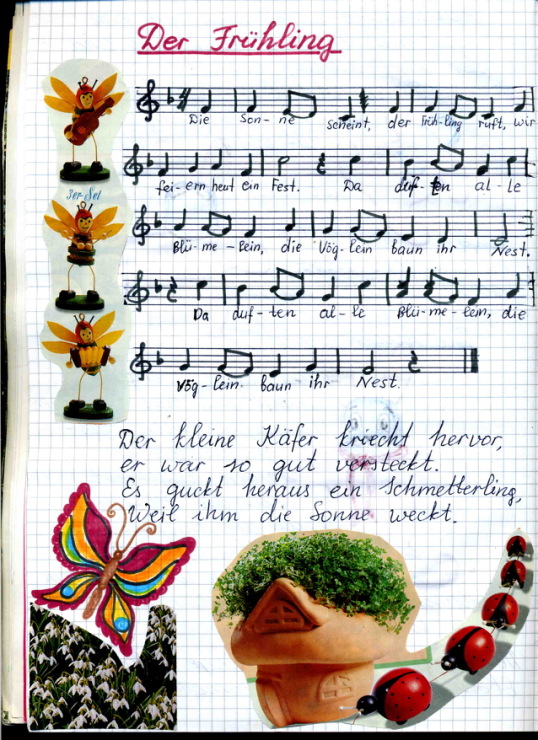 Der Frühling
Die Son-ne scheint, der Früh-ling ruft, wir
fei-ern heut ein Fest. Da duf-ten al-le
3er-Set
Blü-me-lein, die Vög-lein baun ihr Nest.
Da duf-ten al-le Blü-me-lein, die
Vög-lein baun ihr Nest.
Der kleine Käfer kriecht hervor,
er war so gut versteckt.
Es guckt heraus ein Schmetterling,
Weil ihm die Sonne weckt.